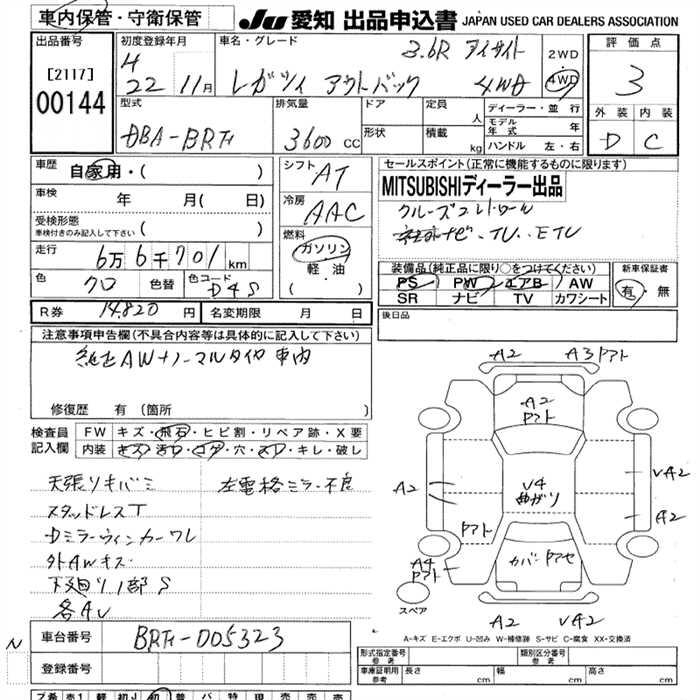 車内保管・守衛保管
JU 愛知 出品申込書 JAPAN USED CAR DEALERS ASSOCIATION
出品番号
[2117]
00144
初度登録年月
H
22 11月
車名・グレード
3.6R アイサイト
レガシィ アウトバック 4WD
2WD
4WD
評価点
3
外装 内装
D C
型式
DBA-BRF
排気量
3600 CC
ドア
形状
定員
人
積載
kg
ディーラー・並行
モデル年式 年
ハンドル 左・右
車歴 自家用・( )
車検 年 月( 日)
受検形態
車検付きのみ記入して下さい ( )
走行 6万6千701km
色 クロ 色替 色コード D4S
シフト AT
冷房 AAC
燃料
ガソリン
軽油
( )
セールスポイント(正常に機能するものに限ります)
MITSUBISHIディーラー出品
クルーズコントロール
社外ナビ・TV・ETC
装備品(純正品に限り○をつけてください)
PS PW エアB AW
SR ナビ TV カワシート
新車保証書
有・無
R券 14,820円 名変期限 月 日
後日品
注意事項申告欄(不具合内容等は具体的に記入して下さい)
純正AW+ノーマルタイヤ車内
修復歴 有 (箇所 )
検査員記入欄
FW キズ・飛石・ヒビ割・リペア跡・X要
内装 キズ・汚れ・コゲ・穴・スレ・キレ・破レ
天張りキバミ 左電格ミラー不良
スタッドレスT
Dミラーウィンカーワレ
外AWキズ
下廻り1部S
各AU
A2 A3アト
A2
アト
V4
曲がり
A2
VA2
A2
アト
A4
アト
カバー
スペア
A2 VA2
A-キズ E-エクボ U-凹み W-補修跡 S-サビ C-腐食 XX-交換済
N
車台番号 BRF-005323
登録番号
形式指定番号
参考
類別区分番号
参考
車庫証明用
参考
長さ cm 幅 cm 高さ cm